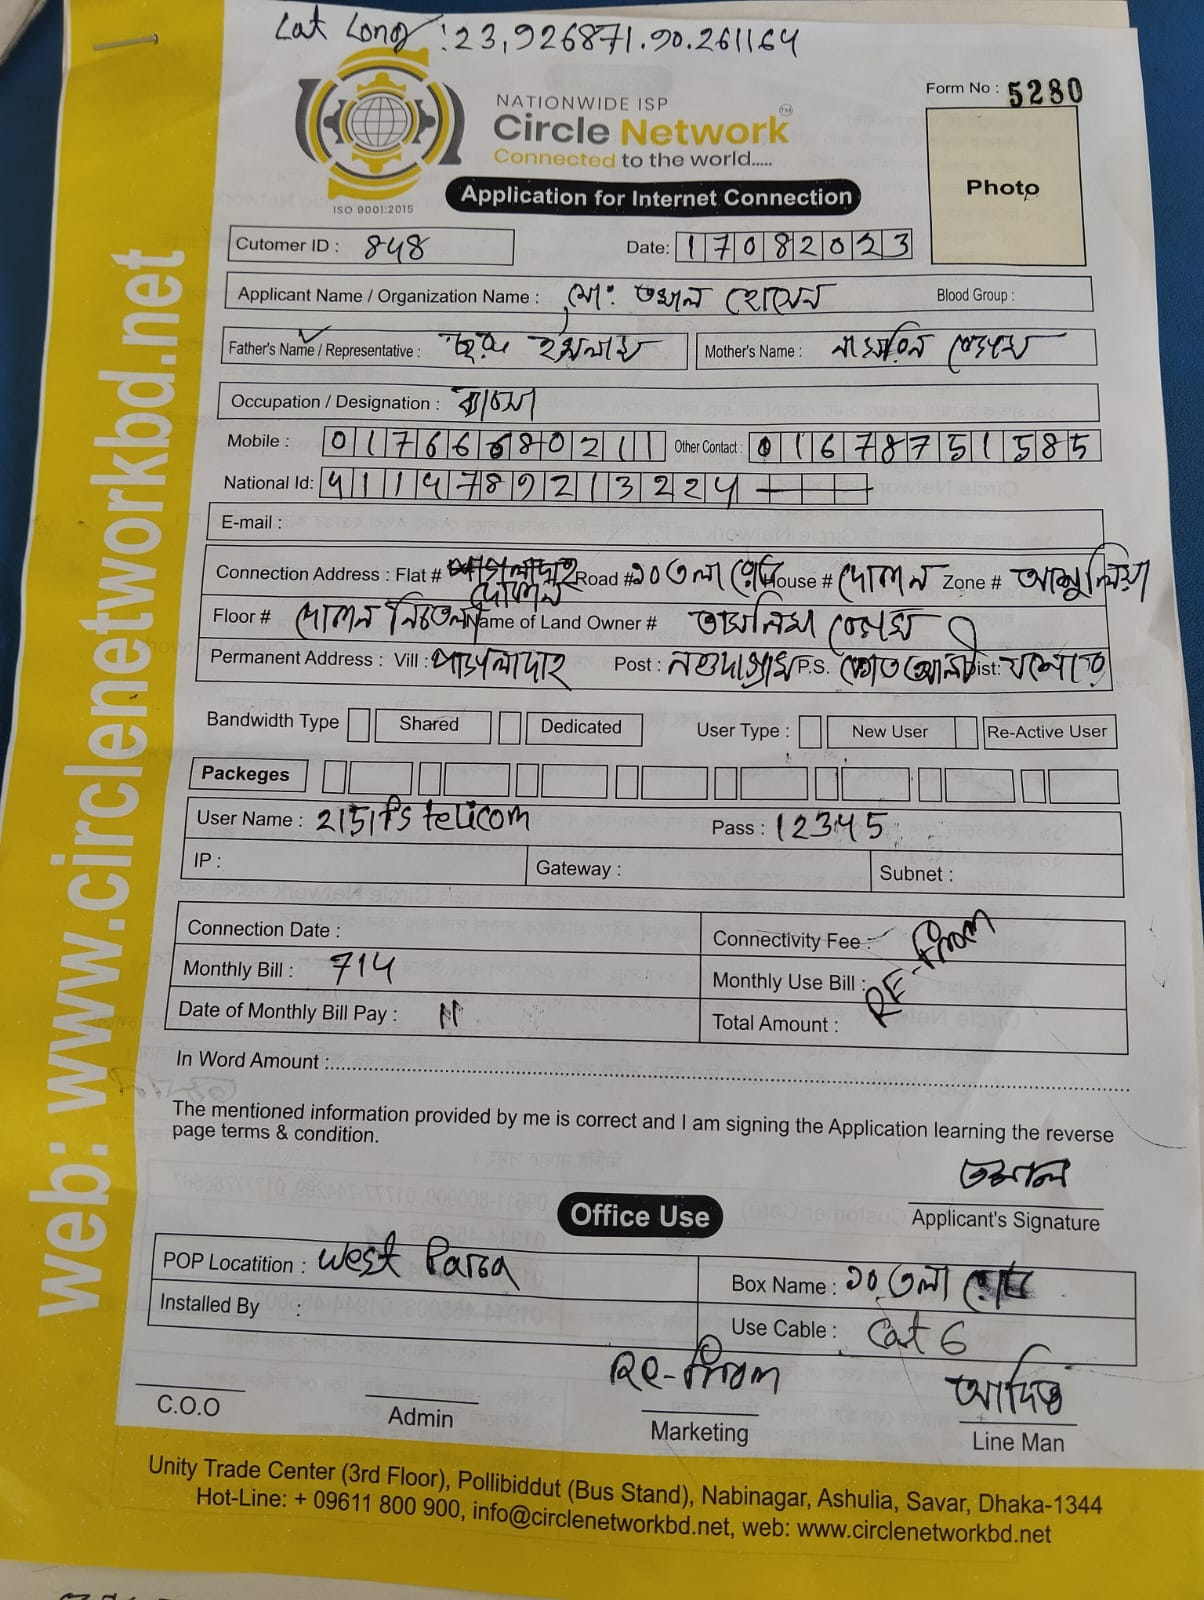 Lat Long : 23,926871.90.261164
Form No : 5280
NATIONWIDE ISP
Circle Network
TM
Connected to the world.....
ISO 9001:2015
Application for Internet Connection
Photo
Cutomer ID : 848
Date: 17082023
Applicant Name / Organization Name : মো: তমাল হোসেন Blood Group :
Father's Name / Representative : ইসলাম Mother's Name : নাসরিন বেগম
Occupation / Designation : ব্যবসা
Mobile : 01766680211 Other Contact : 01678751585
National Id: 41114789213224
E-mail :
Connection Address : Flat # Road # ১০তলা রোড House # দোকান Zone # আশুলিয়া
দোকান
Floor # দোকান Name of Land Owner # তাসলিমা বেগম
Permanent Address : Vill : পাগলাদাহ Post : P.S. কোতোয়ালী Dist: যশোর
Bandwidth Type Shared Dedicated User Type : New User Re-Active User
Packeges
User Name : 2151fs telicom Pass : 12345
IP : Gateway : Subnet :
Connection Date : Connectivity Fee :
Monthly Bill : 714 Monthly Use Bill :
RE-from
Date of Monthly Bill Pay : Total Amount :
In Word Amount :
The mentioned information provided by me is correct and I am signing the Application learning the reverse
page terms & condition.
তমাল
Applicant's Signature
Office Use
POP Locatition : West Parsa Box Name : ১০তলা
Installed By : Use Cable : Cat 6
Re-from
C.O.O Admin Marketing Line Man
Unity Trade Center (3rd Floor), Pollibiddut (Bus Stand), Nabinagar, Ashulia, Savar, Dhaka-1344
Hot-Line: + 09611 800 900, info@circlenetworkbd.net, web: www.circlenetworkbd.net
web: www.circlenetworkbd.net